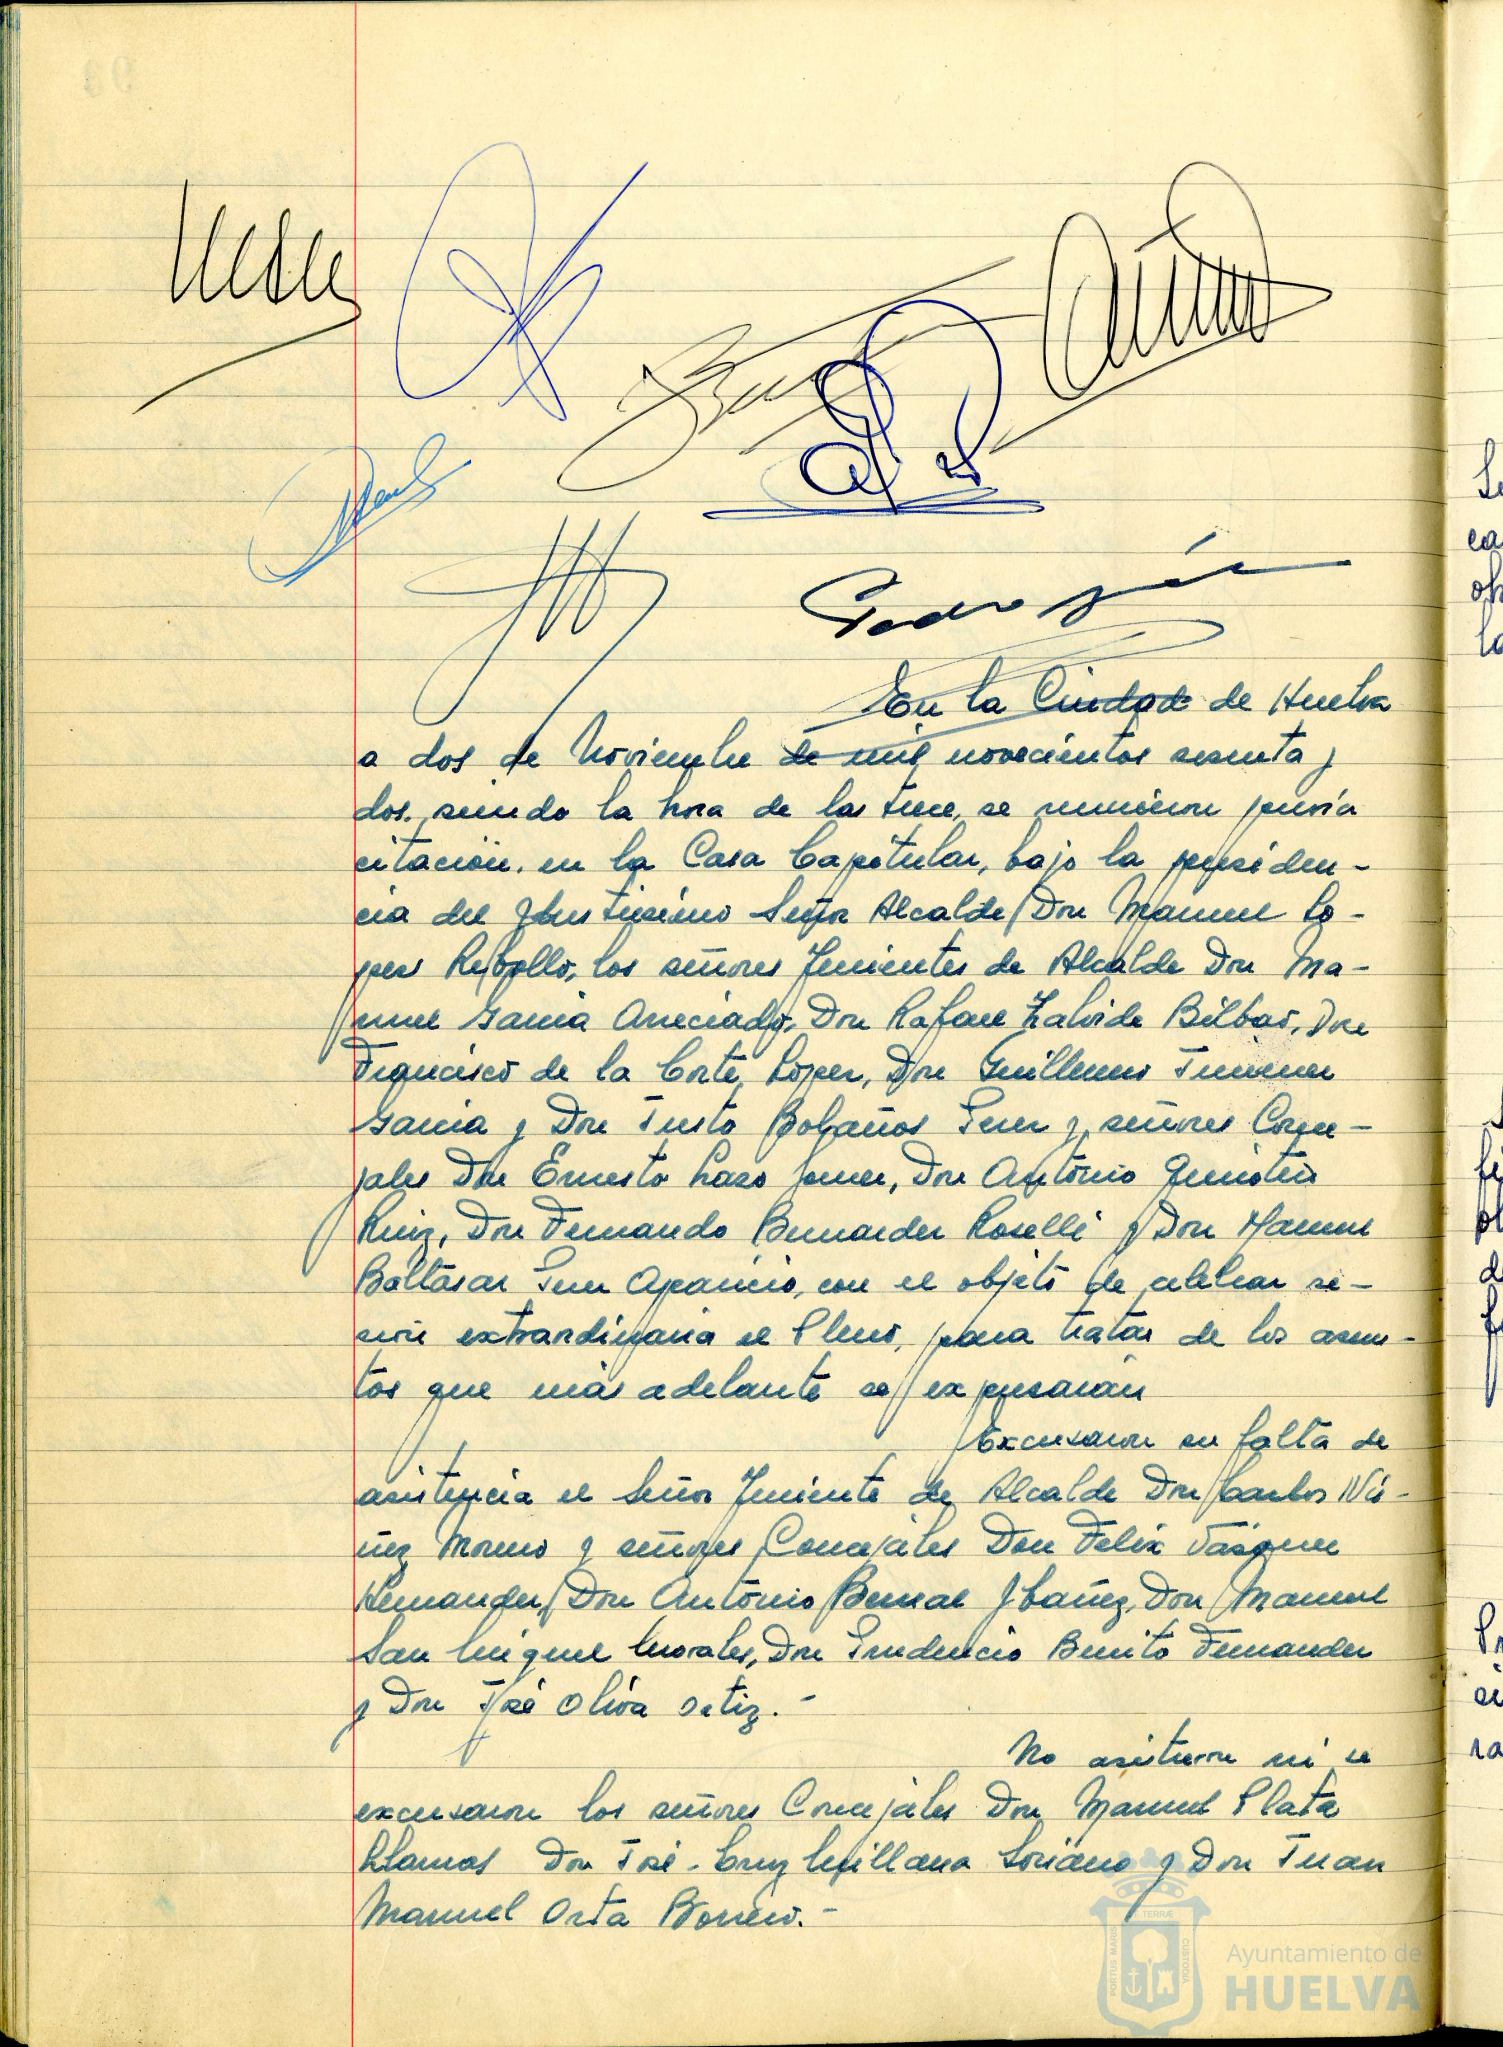 En la Ciudad de Huelva
a dos de Noviembre de mil novecientos sesenta y
dos, siendo la hora de las trece, se reunieron previa
citación, en la Casa Capitular, bajo la presiden-
cia del Ilustrisimo Señor Alcalde, Don Manuel Lo-
pez Rebollo, los señores Tenientes de Alcalde Don Ma-
nuel Garcia Arreciado, Don Rafael Zalvide Bilbao, Don
Francisco de la Corte López, Don Guillermo Jimenez
Garcia y Don Justo Bolaños Perez y, señores Conce-
jales Don Ernesto Lazo, Don Antonio
Ruiz, Don Fernando Bernardez Roselli y Don Manuel
Baltasar Perez Aparicio, con el objeto de celebrar se-
sión extraordinaria el Pleno, para tratar de los asun-
tos que más adelante se expresarán
Excusaron su falta de
asistencia el Señor Teniente de Alcalde Don Carlos Nú-
ñez Moreno y señores Concejales Don Felix Vásquez
Hernandez, Don Antonio Bernal Ibañez, Don Manuel
San Miguel Morales, Don Prudencio Benito Fernandez
y Don José Oliva Ortiz.-
No asistieron ni se
excusaron los señores Concejales Don Manuel Plata
Llamas Don José-Cruz Soriano y Don Juan
Manuel Orta Borrero.-
PORTUS MARIS
TERRÆ
CUSTODIA
Ayuntamiento de
HUELVA